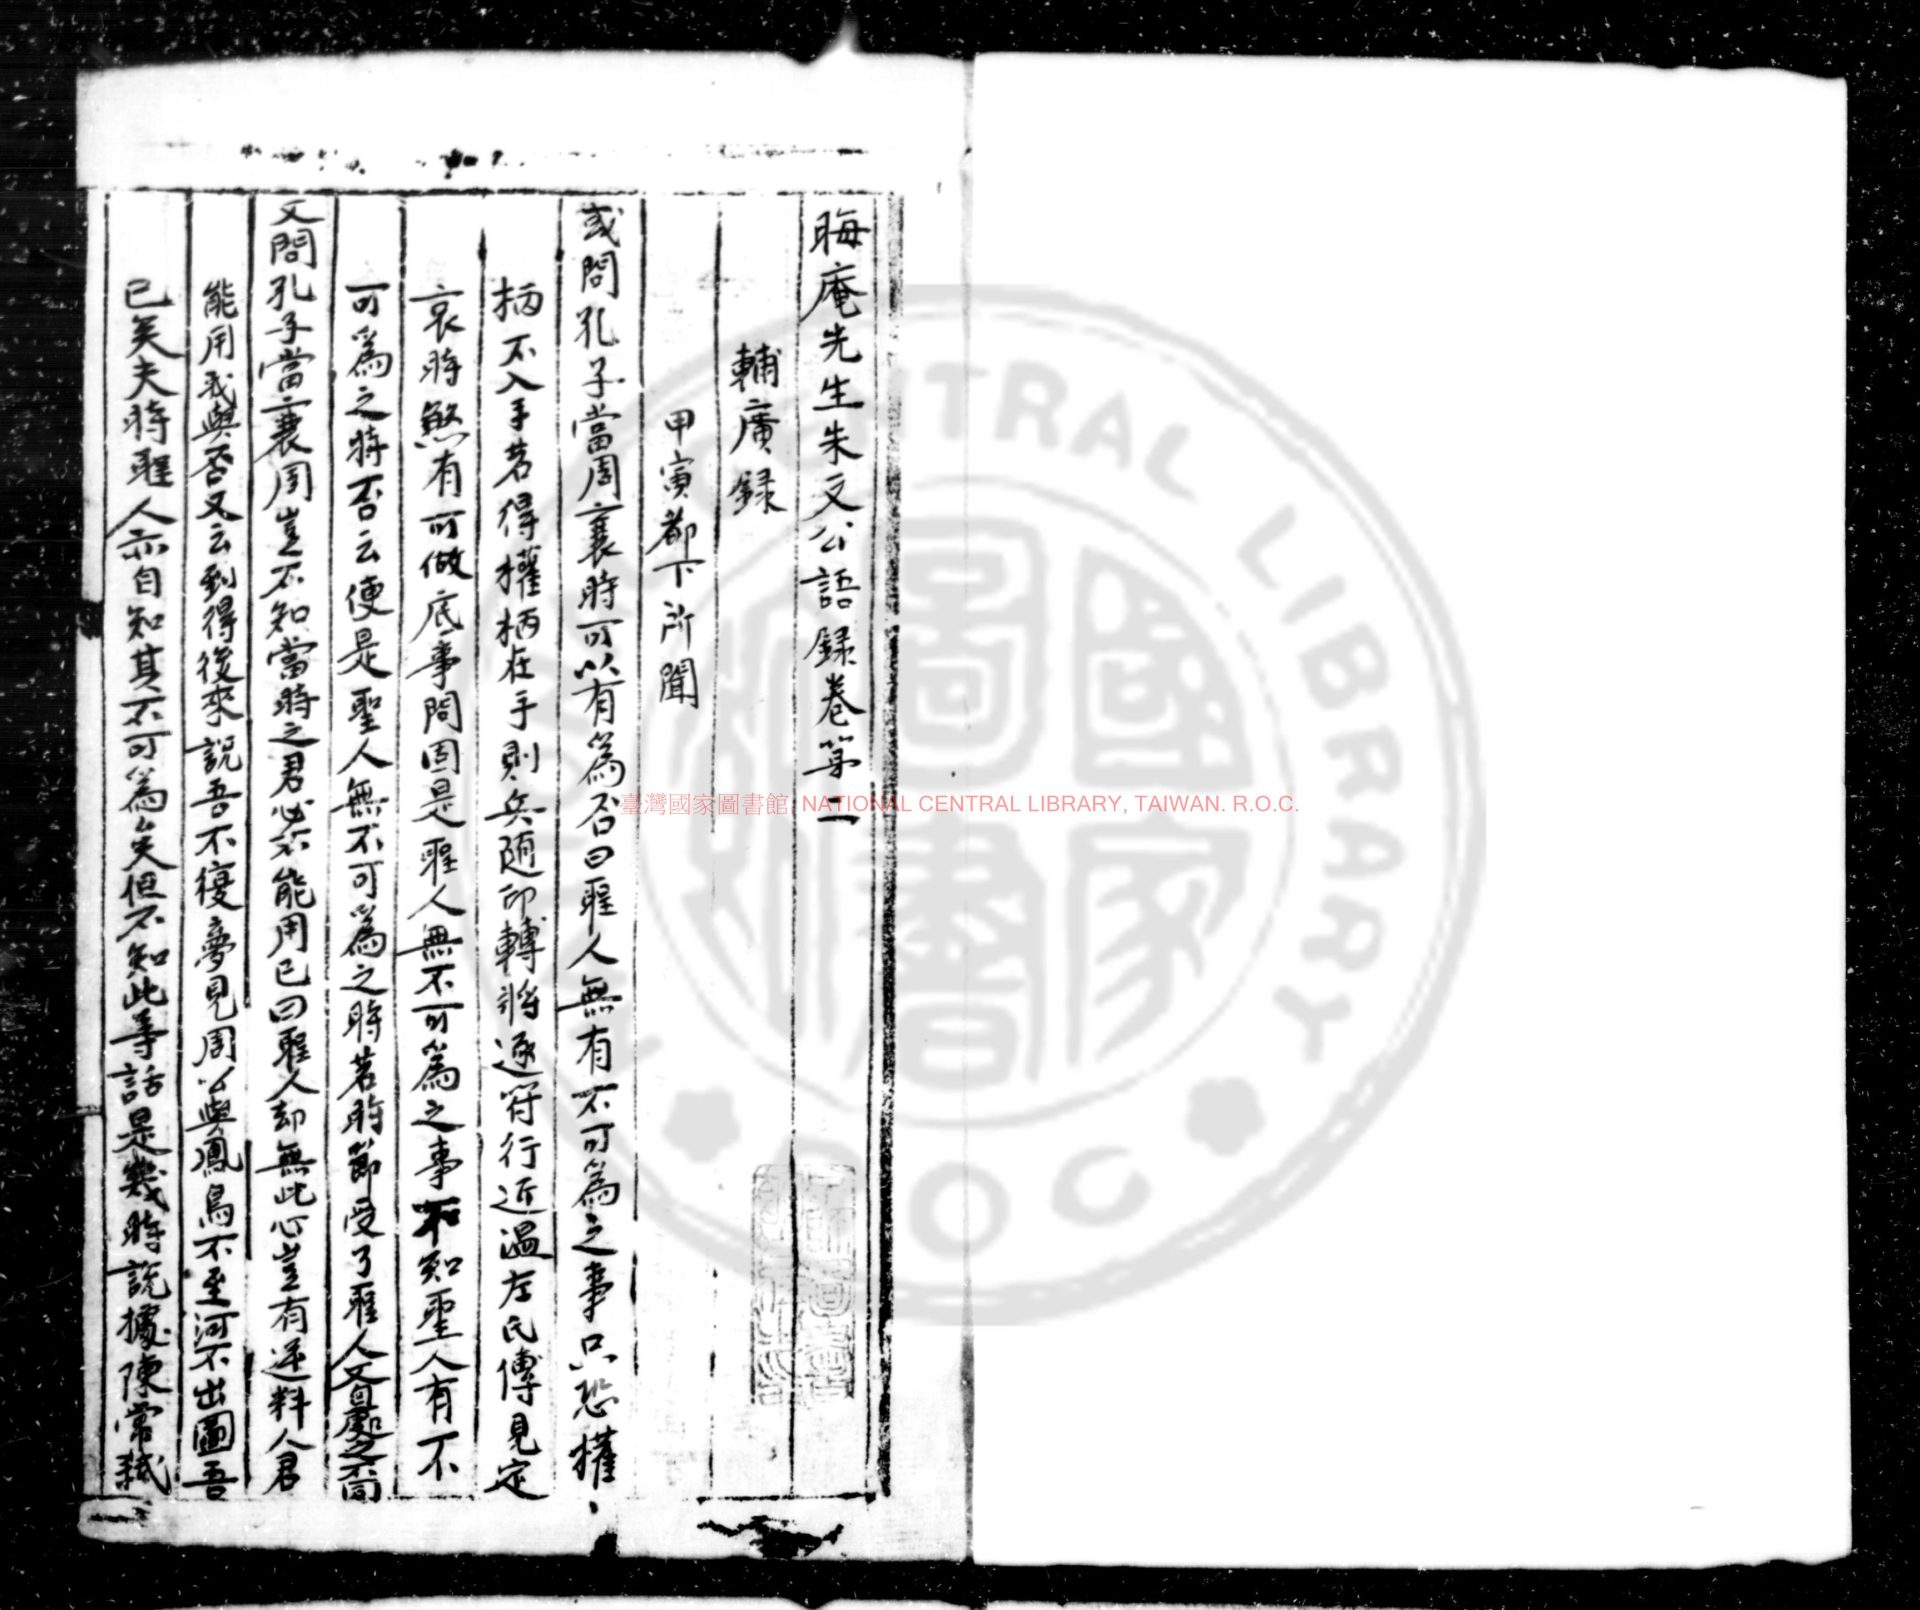 晦庵先生朱文公語錄卷第二
輔廣錄
甲寅都下所聞
或問孔子當周衰時可以有為否曰聖人無有不可為之事只恐權
柄不入手若得權柄在手則兵隨印轉將逐符行近溫左氏傳見定
哀時煞有可做底事問固是聖人無不可為之事不知聖人有不
可為之時否云便是聖人無不可為之時若時節變了聖人又自處之不同
又問孔子當衰周豈不知當時之君必不能用已曰聖人却無此心豈有逆料人君
能用我與否又云到得後來說吾不復夢見周公與鳳鳥不至河不出圖吾
已矣夫時聖人亦自知其不可為矣但不知此等話是幾時說據陳常弑
臺灣國家圖書館, NATIONAL CENTRAL LIBRARY, TAIWAN. R.O.C.